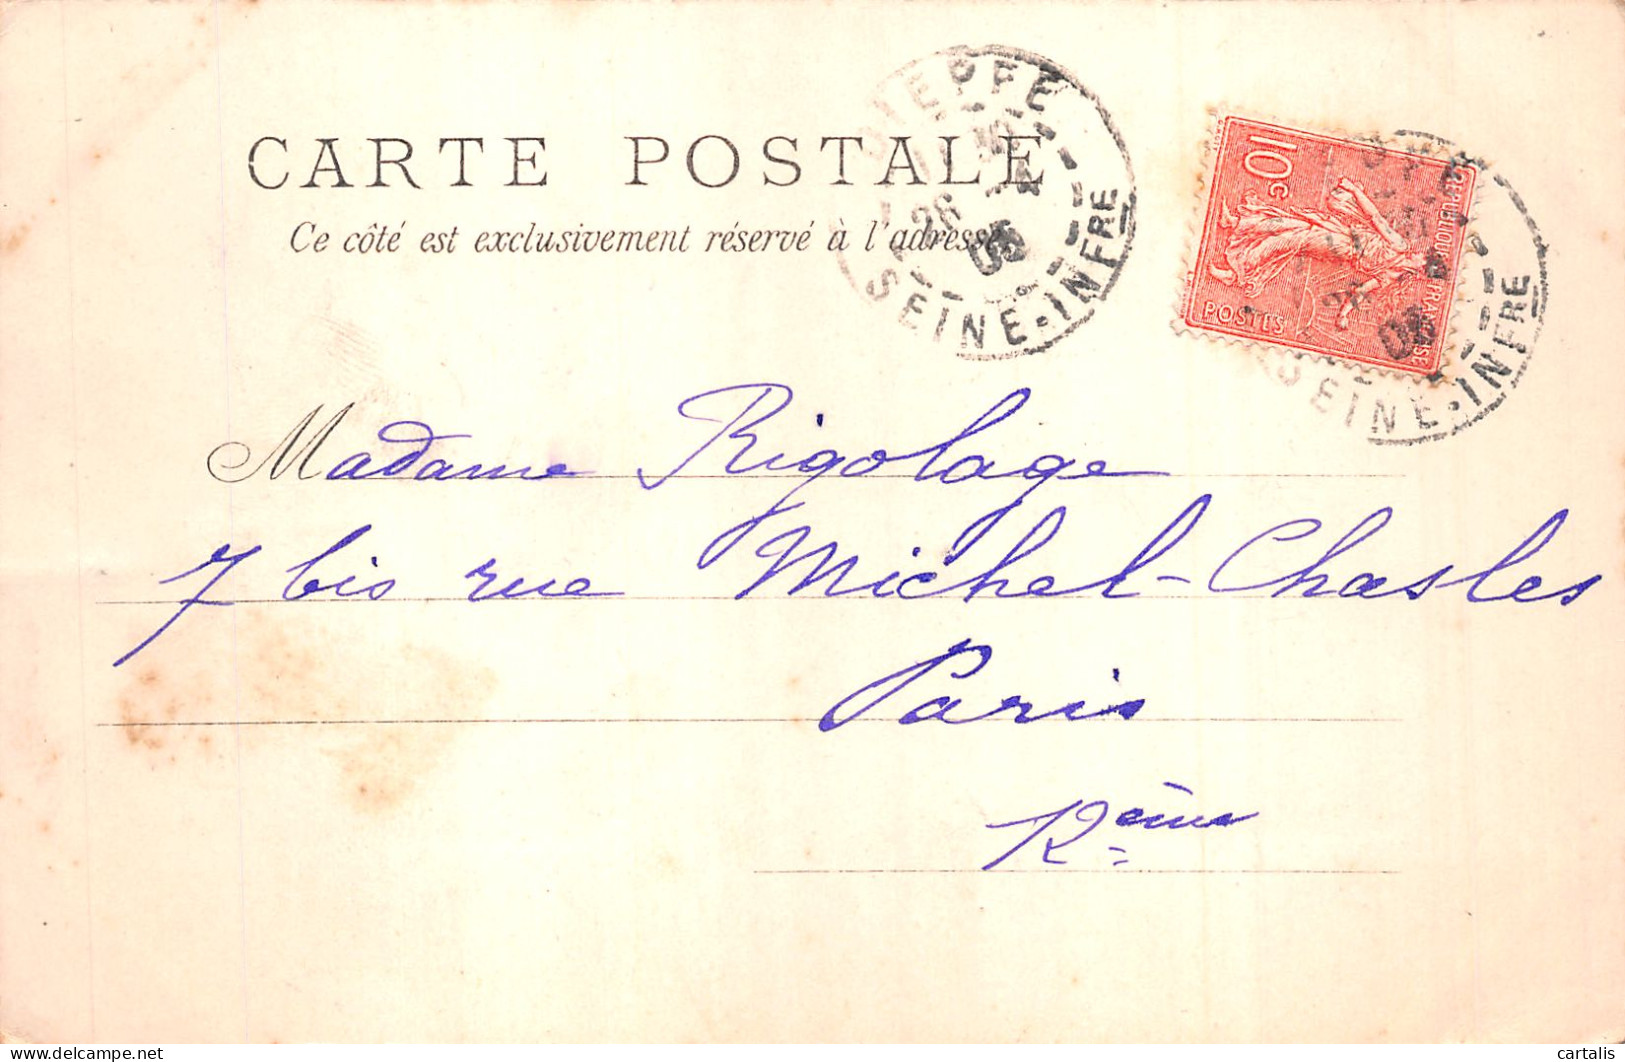 CARTE POSTALE
Ce côté est exclusivement réservé à l'adresse
DIEPPE
26
05
SEINE-INFRE
10c
REPUBLIQUE FRANÇAISE
POSTES
05
SEINE-INFRE
Madame Rigolage
7 bis rue Michel-Chasles
Paris
12ème
delcampe.net
cartalis